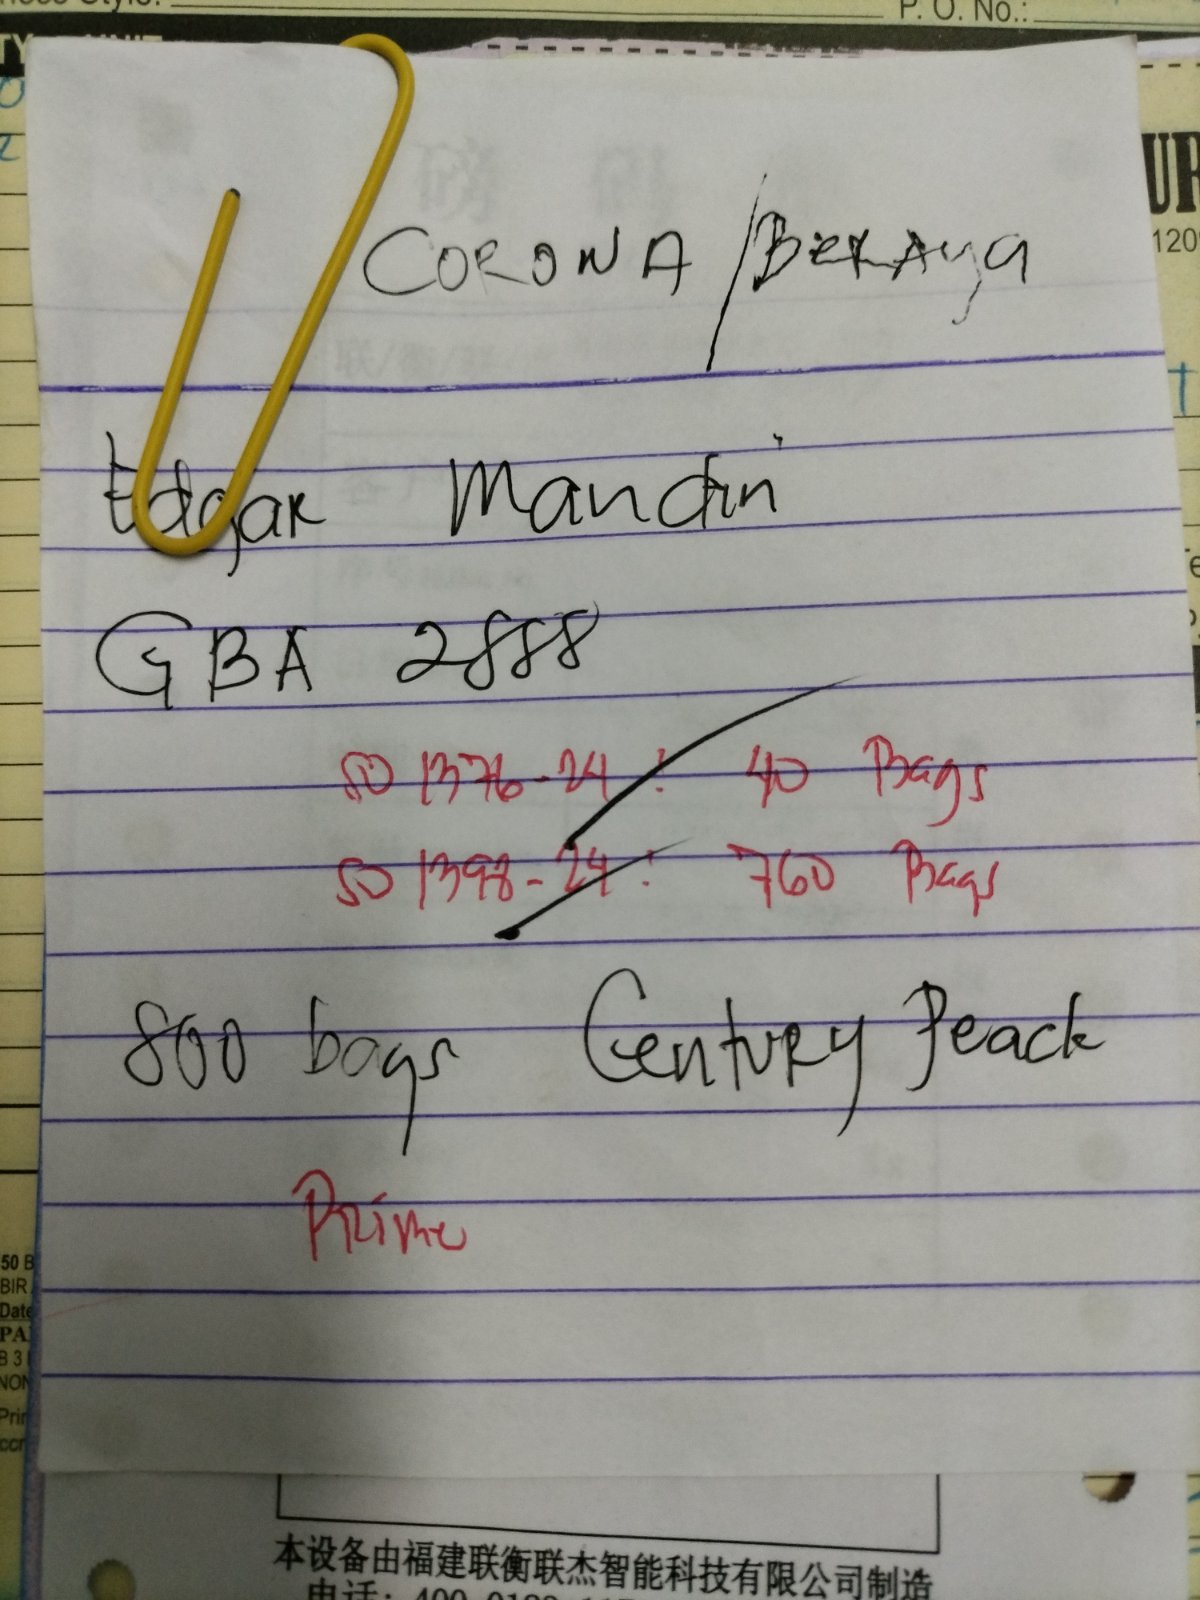 P. O. No.:
UR
120
CORONA / BERAya
Edgar Mandin
GBA 2888
SO 1376-24 : 40 Bags
SO 1398-24 : 760 Bags
800 bags Century Peack
Prime
50 B
BIR
Date
B 3
NON
Prin
ccr
本设备由福建联衡联杰智能科技有限公司制造